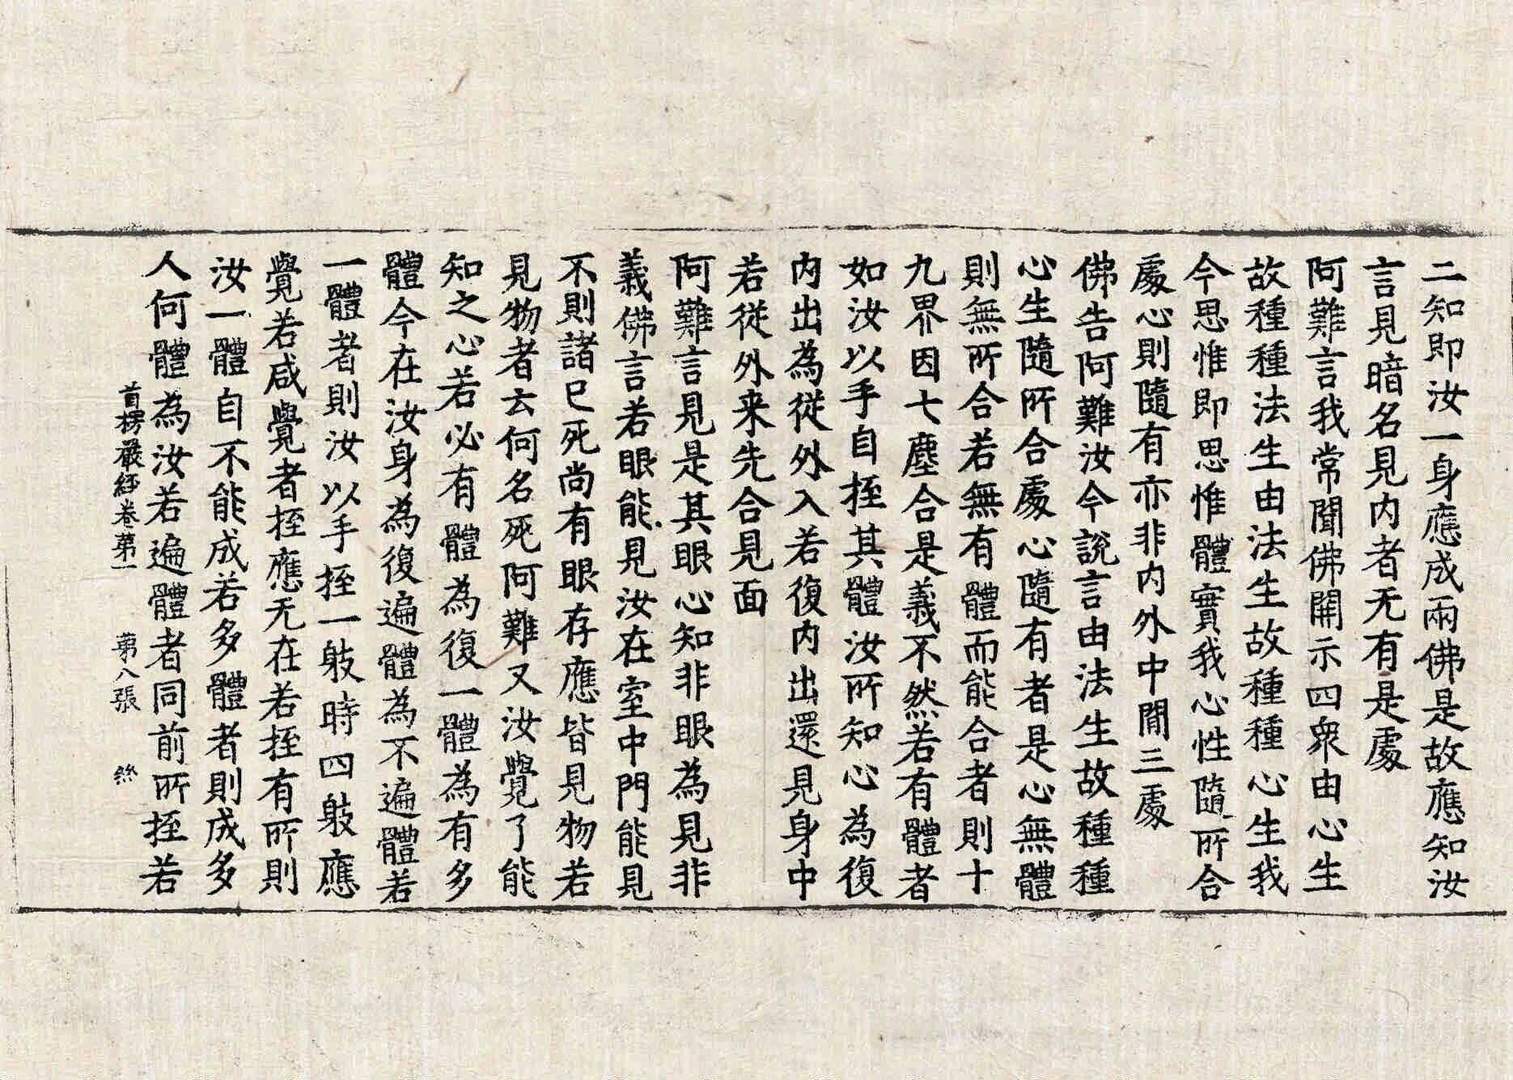 二知即汝一身應成兩佛是故應知汝
言見暗名見内者无有是處
阿難言我常聞佛開示四衆由心生
故種種法生由法生故種種心生我
今思惟即思惟體實我心性隨所合
處心則隨有亦非内外中間三處
佛告阿難汝今說言由法生故種種
心生隨所合處心隨有者是心無體
則無所合若無有體而能合者則十
九界因七塵合是義不然若有體者
如汝以手自挃其體汝所知心為復
内出為從外入若復内出還見身中
若從外来先合見面
阿難言見是其眼心知非眼為見非
義佛言若眼能見汝在室中門能見
不則諸已死尚有眼存應皆見物若
見物者云何名死阿難又汝覺了能
知之心若必有體為復一體為有多
體今在汝身為復遍體為不遍體若
一體者則汝以手挃一肢時四肢應
覺若咸覺者挃應无在若挃有所則
汝一體自不能成若多體者則成多
人何體為汝若遍體者同前所挃若
首楞嚴經卷第一 第八張